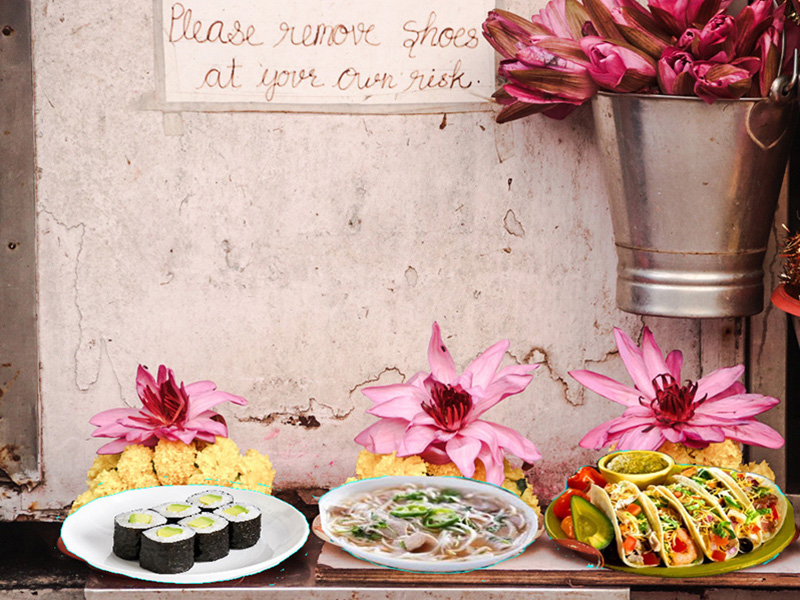 Please remove shoes
at your own risk.